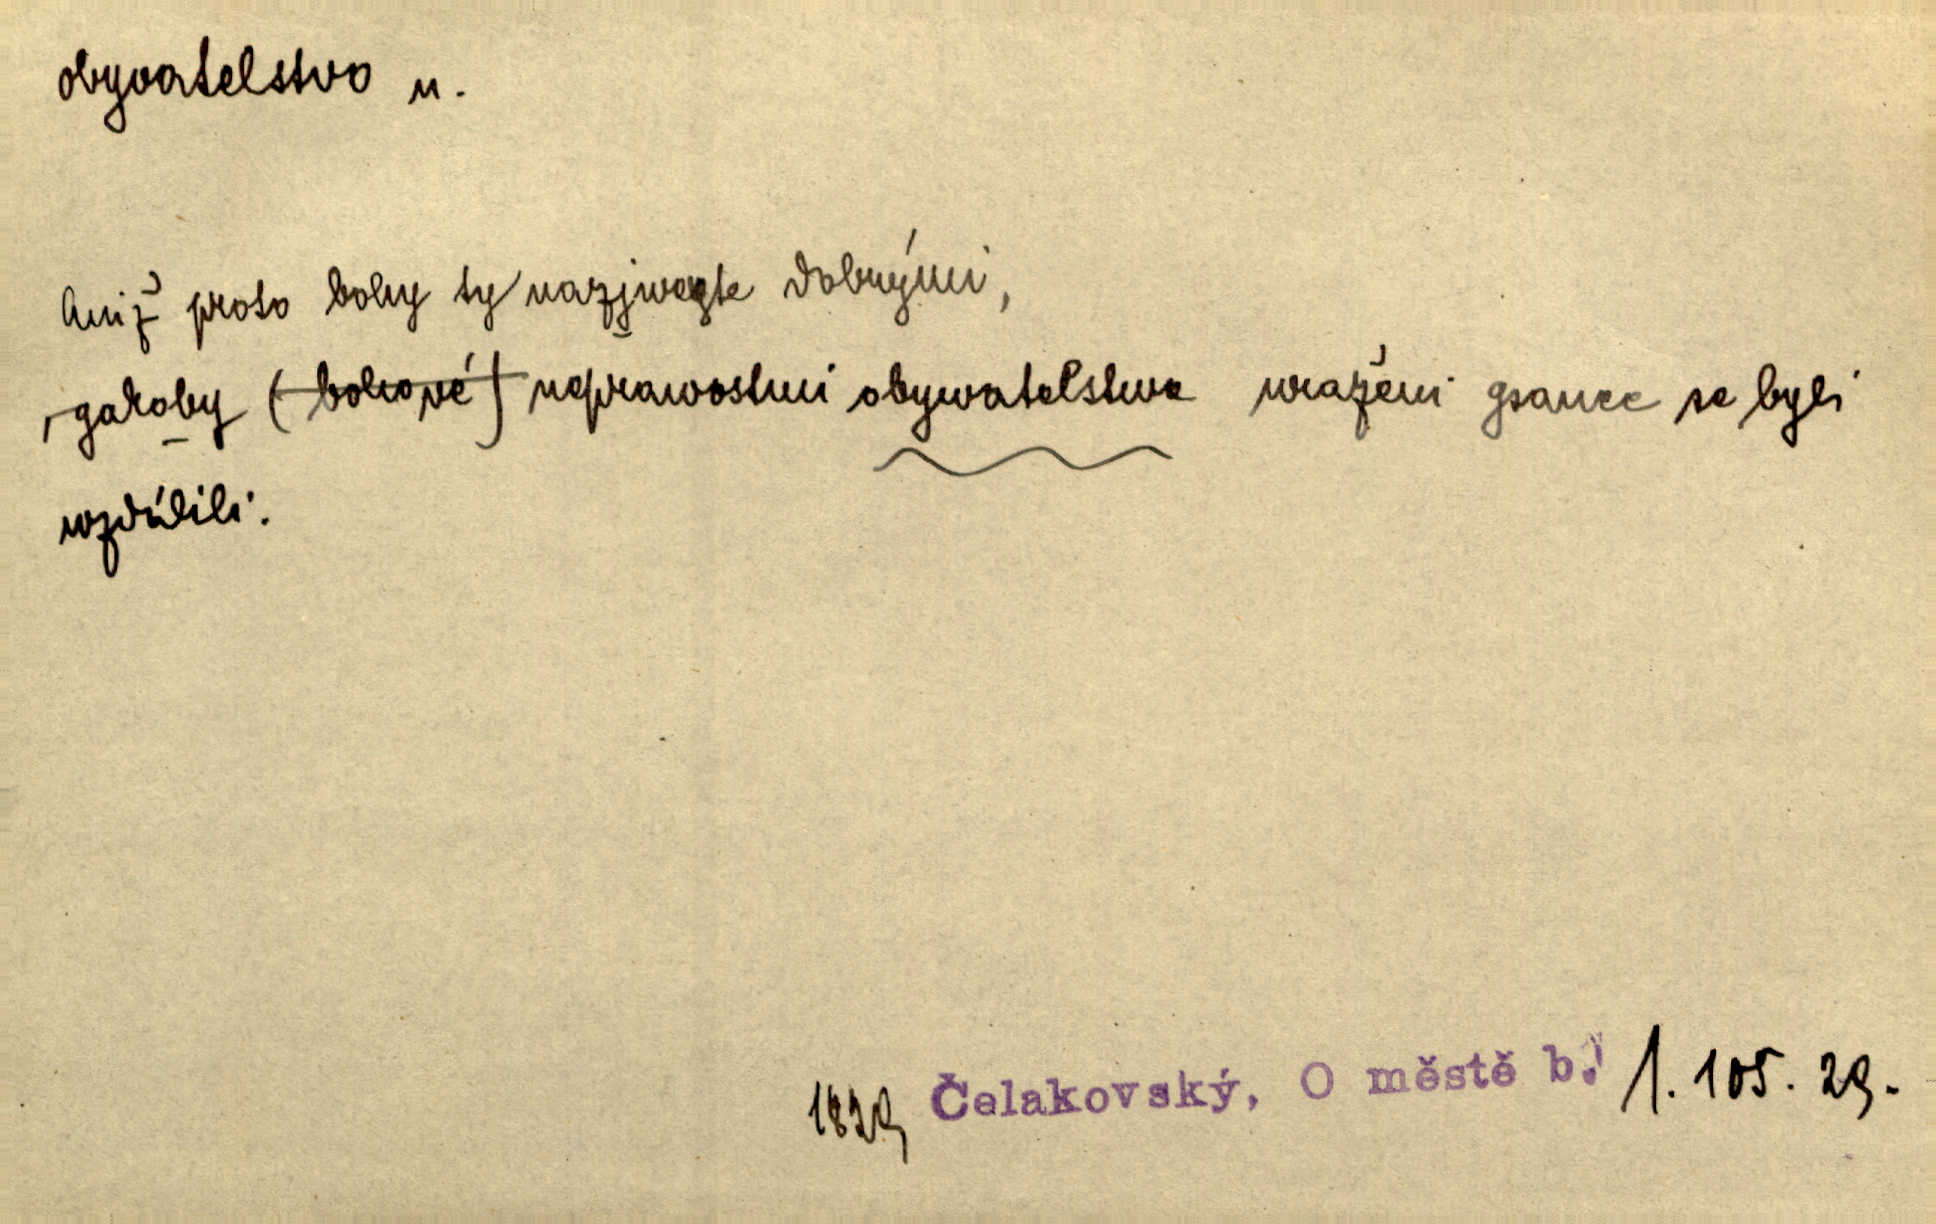 obyvatelstvo n.
Aniž proto bohy ty nazjweyte dobrými,
gakoby (bohové) neprawostmi obywatelstwa uraženi gsauce se byli
wzdálili.
1829 Čelakovský, O městě b. 1. 105. 29.